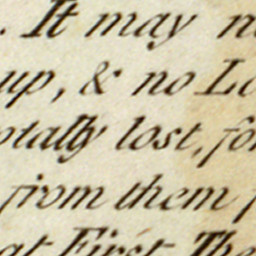 . It may
up, & no
totally lost, for
from them
at First The